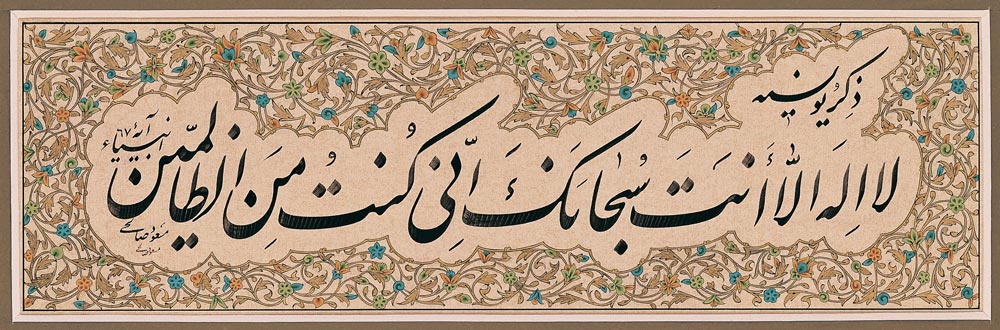 ذکر یونسیه
لا اله الّا أَنتَ سُبحانکَ انّی کُنتُ مِنَ الظالمین
انبیاء آیهٔ
مسعود